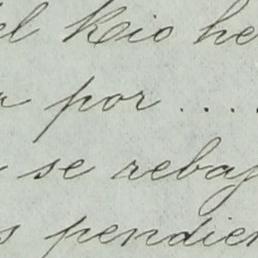 el Rio he
por ....
se rebaj
s pendien